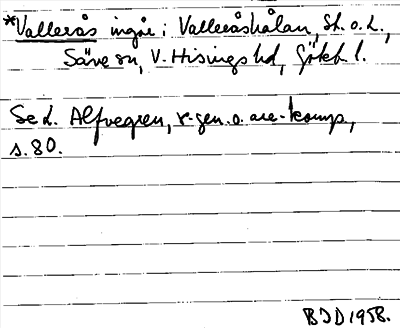 *Vallerås ingår i Valleråshålan, st. o. L.,
Säve sn, V. Hisings hd, Götebl.
Se L. Alfvegren, r-gen. o. are-komp,
s. 80.
BJD 1958.